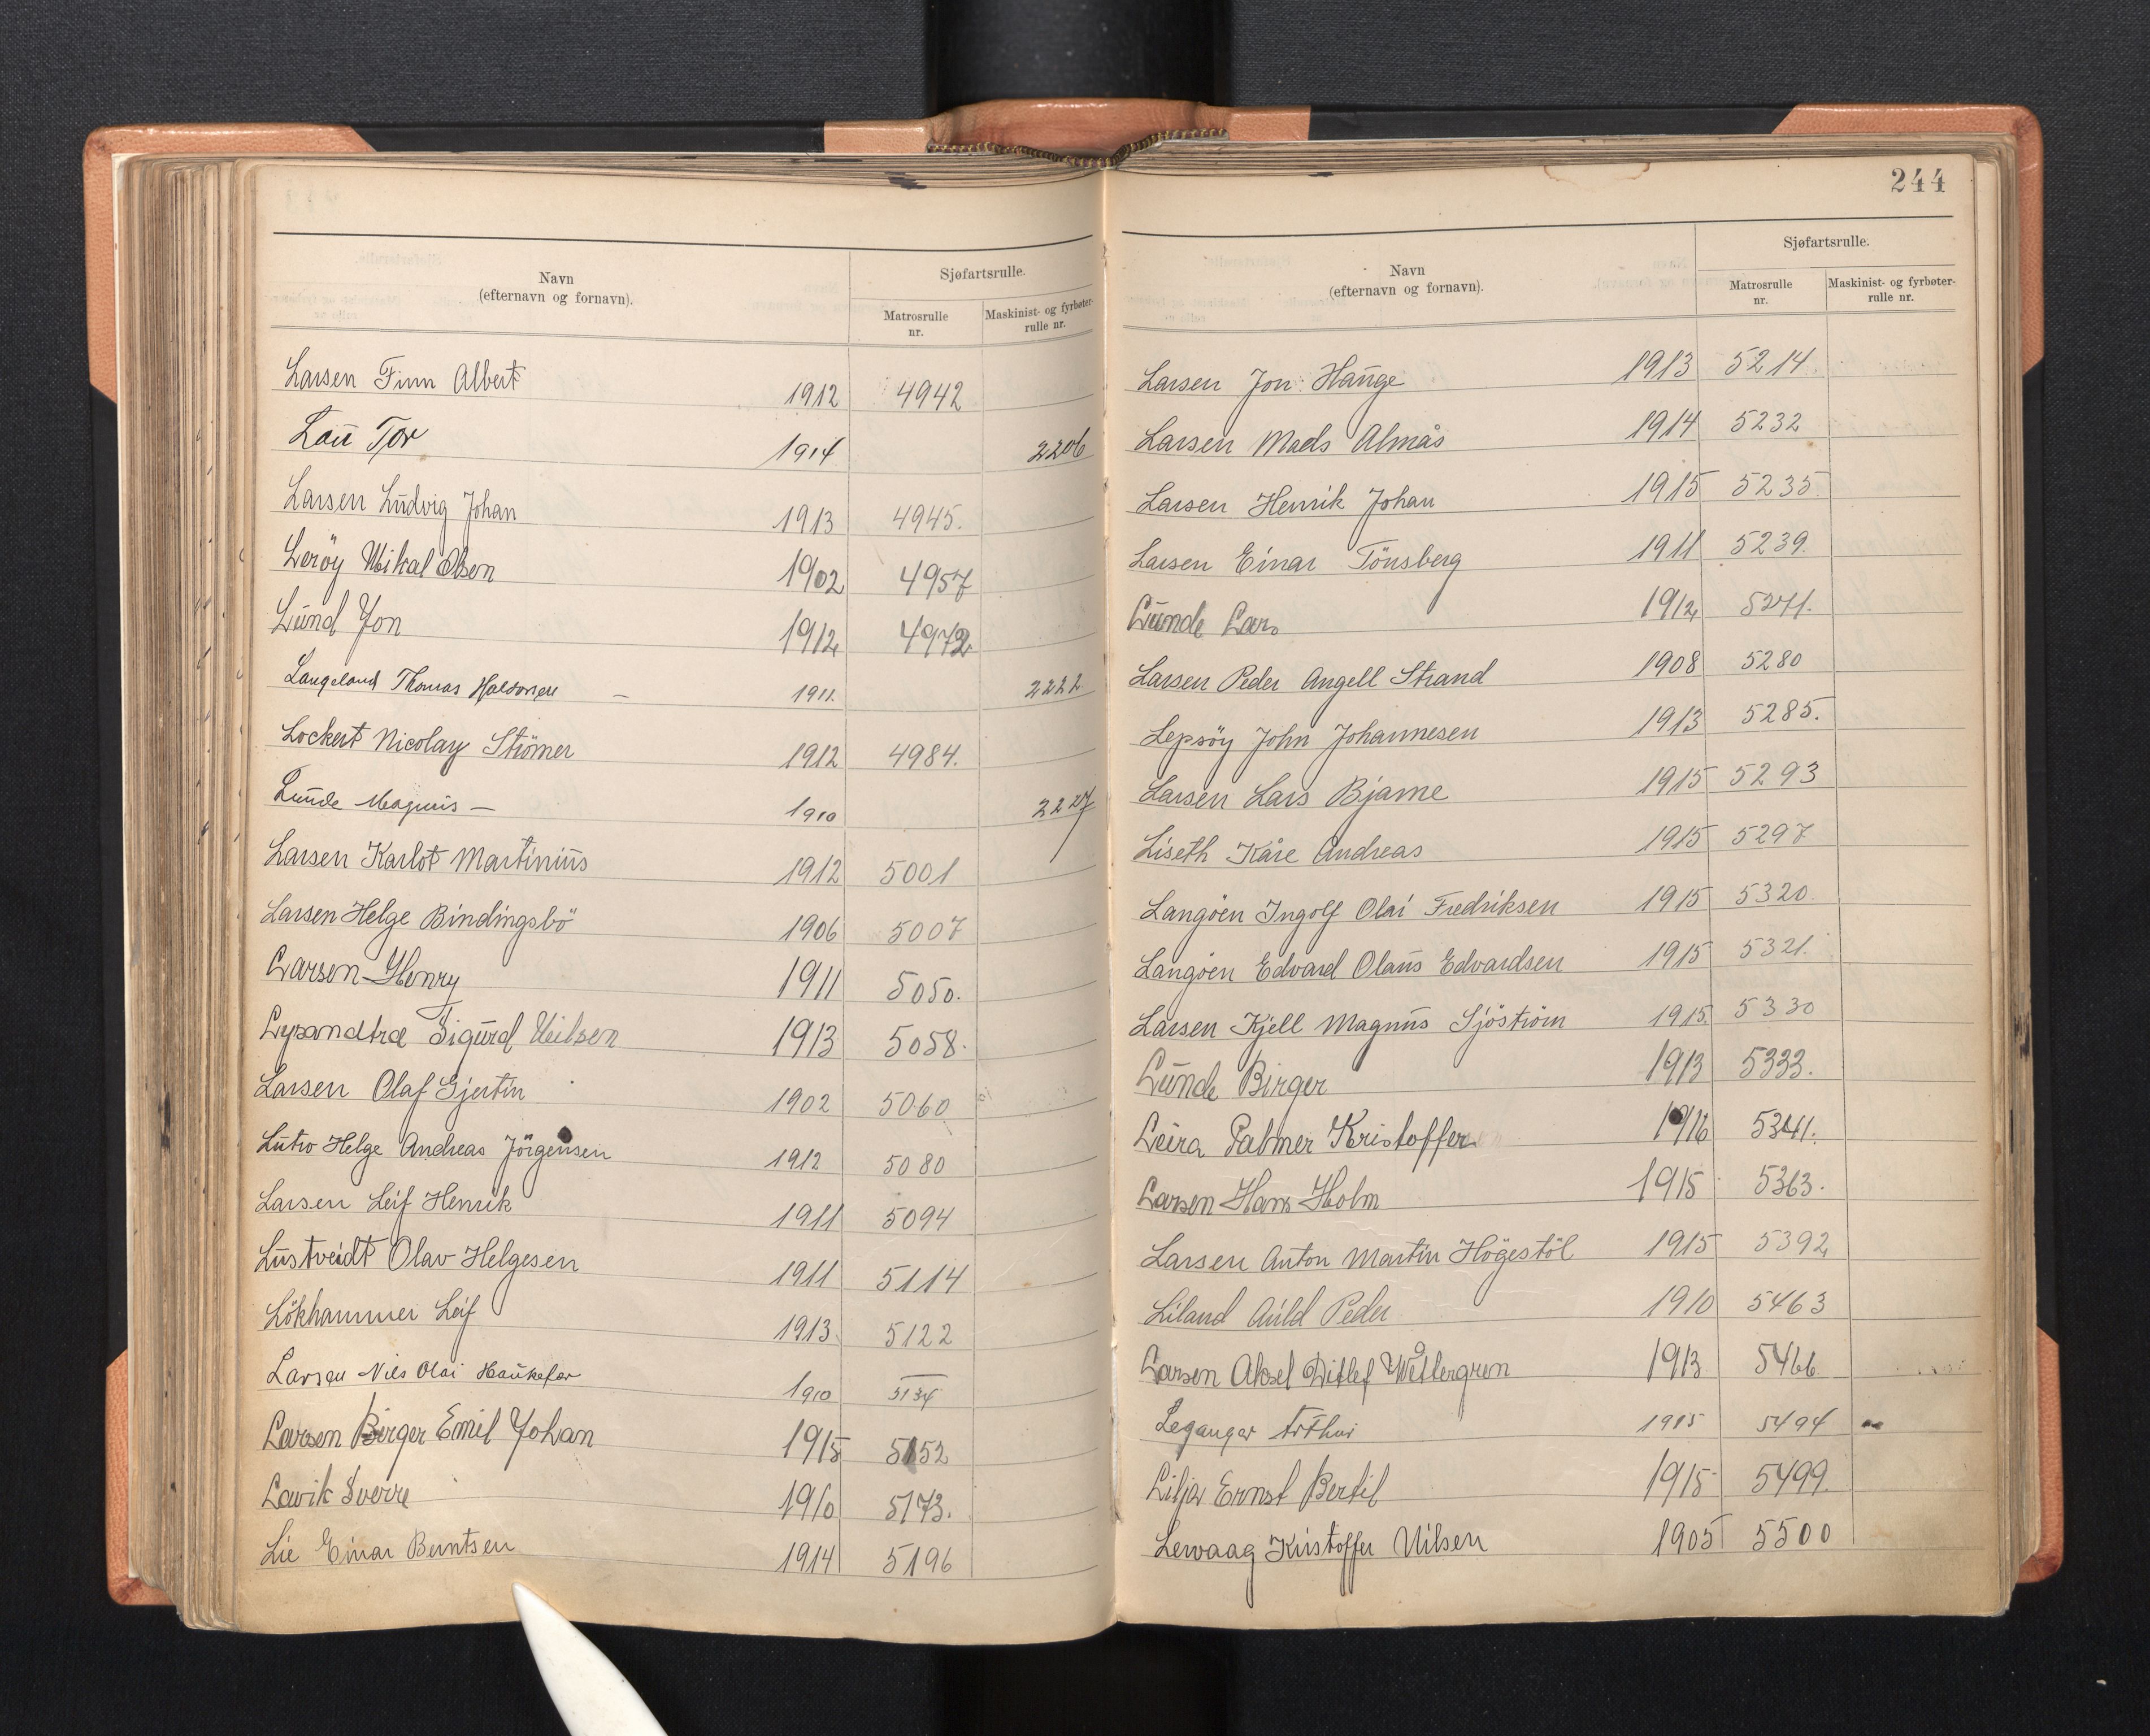 Navn
(efternavn og fornavn).
Sjøfartsrulle.
Matrosrulle
nr.
Maskinist- og fyrbøter-
rulle nr.
Larsen Finn Albert 1912 4942
Lau Tor 1914 2206
Larsen Ludvig Johan 1913 4945.
Leröy Mikal Olsen 1902 4957
Lund Jon 1912 4972
Langeland Thomas Haldorsen – 1911. 2222.
Lockert Nicolay Strömer 1912 4984.
Lunde Magnus – 1910 2227
Larsen Karlot Martinius 1912 5001
Larsen Helge Bindingsbö 1906 5007
Larsen Henry 1911 5050.
Lysandtræ Sigurd Nilsen 1913 5058.
Larsen Olaf Gjertin 1902 5060
Lutro Helge Andreas Jörgensen 1912 5080
Larsen Leif Henrik 1911 5094
Lustveidt Olav Helgesen 1911 5114
Lökhammer Leif 1913 5122
Larsen Nils Olai Haukefær 1910 5134
Larsen Birger Emil Johan 1915 5152
Lavik Sverre 1910 5173.
Lie Einar Berntsen 1914 5196
244
Navn
(efternavn og fornavn).
Sjøfartsrulle.
Matrosrulle
nr.
Maskinist- og fyrbøter-
rulle nr.
Larsen Jon Hauge 1913 5214
Larsen Mads Almås 1914 5232
Larsen Henrik Johan 1915 5235
Larsen Einar Tönsberg 1911 5239.
Lunde Lars 1912 5271.
Larsen Peder Angell Strand 1908 5280
Lepsöy John Johannesen 1913 5285.
Larsen Lars Bjarne 1915 5293
Liseth Kåre Andreas 1915 5297
Langöen Ingolf Olai Fredriksen 1915 5320
Langöen Edvard Olaus Edvardsen 1915 5321.
Larsen Kjell Magnus Sjöström 1915. 5330
Lunde Birger 1913 5333.
Leira Palmer Kristoffer 1916 5341.
Larsen Hans Holm 1915 5363.
Larsen Anton Martin Högestöl 1915 5392
Liland Auld Peder 1910 5463
Larsen Aksel Ditlef Wettergren 1913 5466
Leganger Arthur 1915 5494
Lilja Ernst Bertil 1915 5499.
Lervaag Kristoffer Nilsen 1905 5500